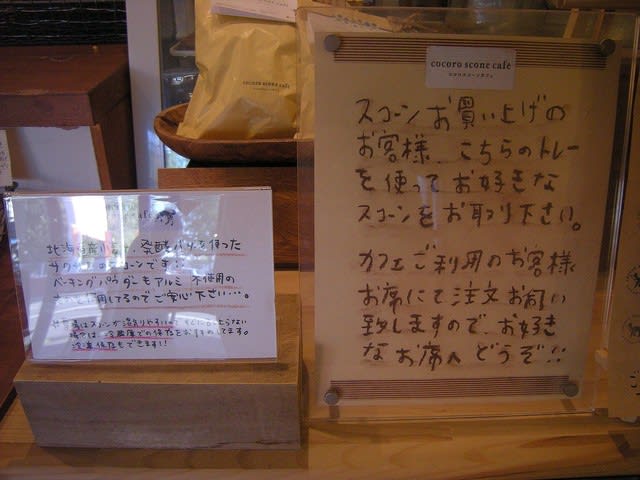 cocoro scone cafe
cocoro scone cafe
ココロスコーンカフェ
スコーンお買い上げの
お客様、こちらのトレー
を使ってお好きな
スコーンをお取り下さい。
カフェご利用のお客様
お席にて注文お願い
致しますので、お好き
なお席へどうぞ!!
北海道産小麦・発酵バターを使った
サクサクのスコーンです!
ベーキングパウダーもアルミ不使用の
使用してるのでご安心下さい…。
はスコーンが湿りやすい
場合は、冷蔵庫での保存をおすすめしてます。
冷凍保存もできます!